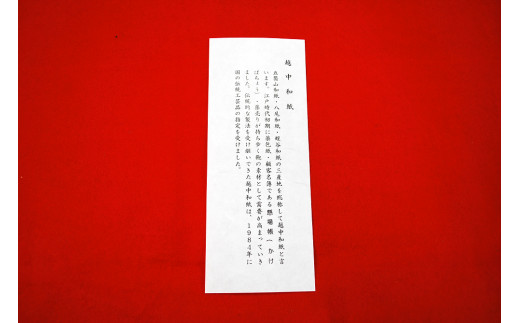 越中和紙
五箇山和紙・八尾和紙・蛭谷和紙の三産地を総称して越中和紙と言
います。江戸時代初期に薬包紙・顧客名簿である懸場帳（かけ
ばちょう）・薬売りが持ち歩く鞄の素材として需要が高まっていき
ました。伝統的な製法を受け継いできた越中和紙は、1984年に
国の伝統工芸品の指定を受けました。